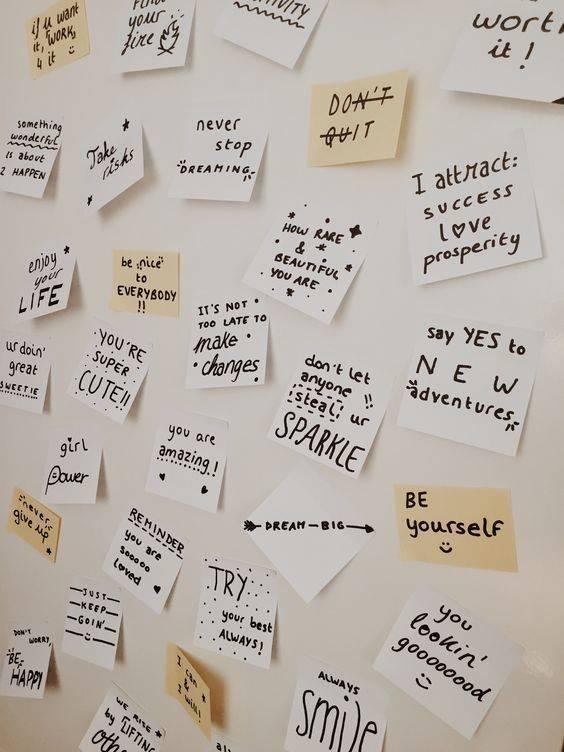 if u want
it, WORK
4 it
FIND
your
fire
worth
it!
something
wonderful
is about
2 HAPPEN
Take
risks
never
stop
DREAMING
DON'T
QUIT
I attract:
SUCCESS
LOVE
prosperity
HOW RARE
&
BEAUTIFUL
YOU ARE
enjoy
your
LIFE
be nice
to
EVERYBODY
!!
IT'S NOT
TOO LATE TO
make
changes
say YES to
NEW
adventures
ur doin'
great
SWEETIE
YOU'RE
SUPER
CUTE!!
don't let
anyone
steal ur
SPARKLE
girl
power
you are
amazing!
never
give up
REMINDER
you are
sooooo
loved
DREAM-BIG
BE
yourself
JUST
KEEP
GOIN'
TRY
your best
ALWAYS!
you
lookin'
gooooooood
DON'T
WORRY
BE
HAPPY
I can
&
I will
ALWAYS
smile
WE RISE
by LIFTING